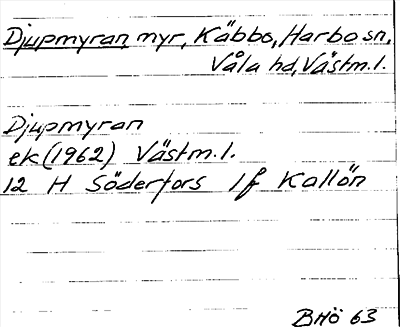 Djupmyran myr, Käbbo, Harbo sn,
Våla hd, Västm.l.
Djupmyran
ek (1962) Västm.l.
12 H Söderfors 1f Kallön
BHÖ 63